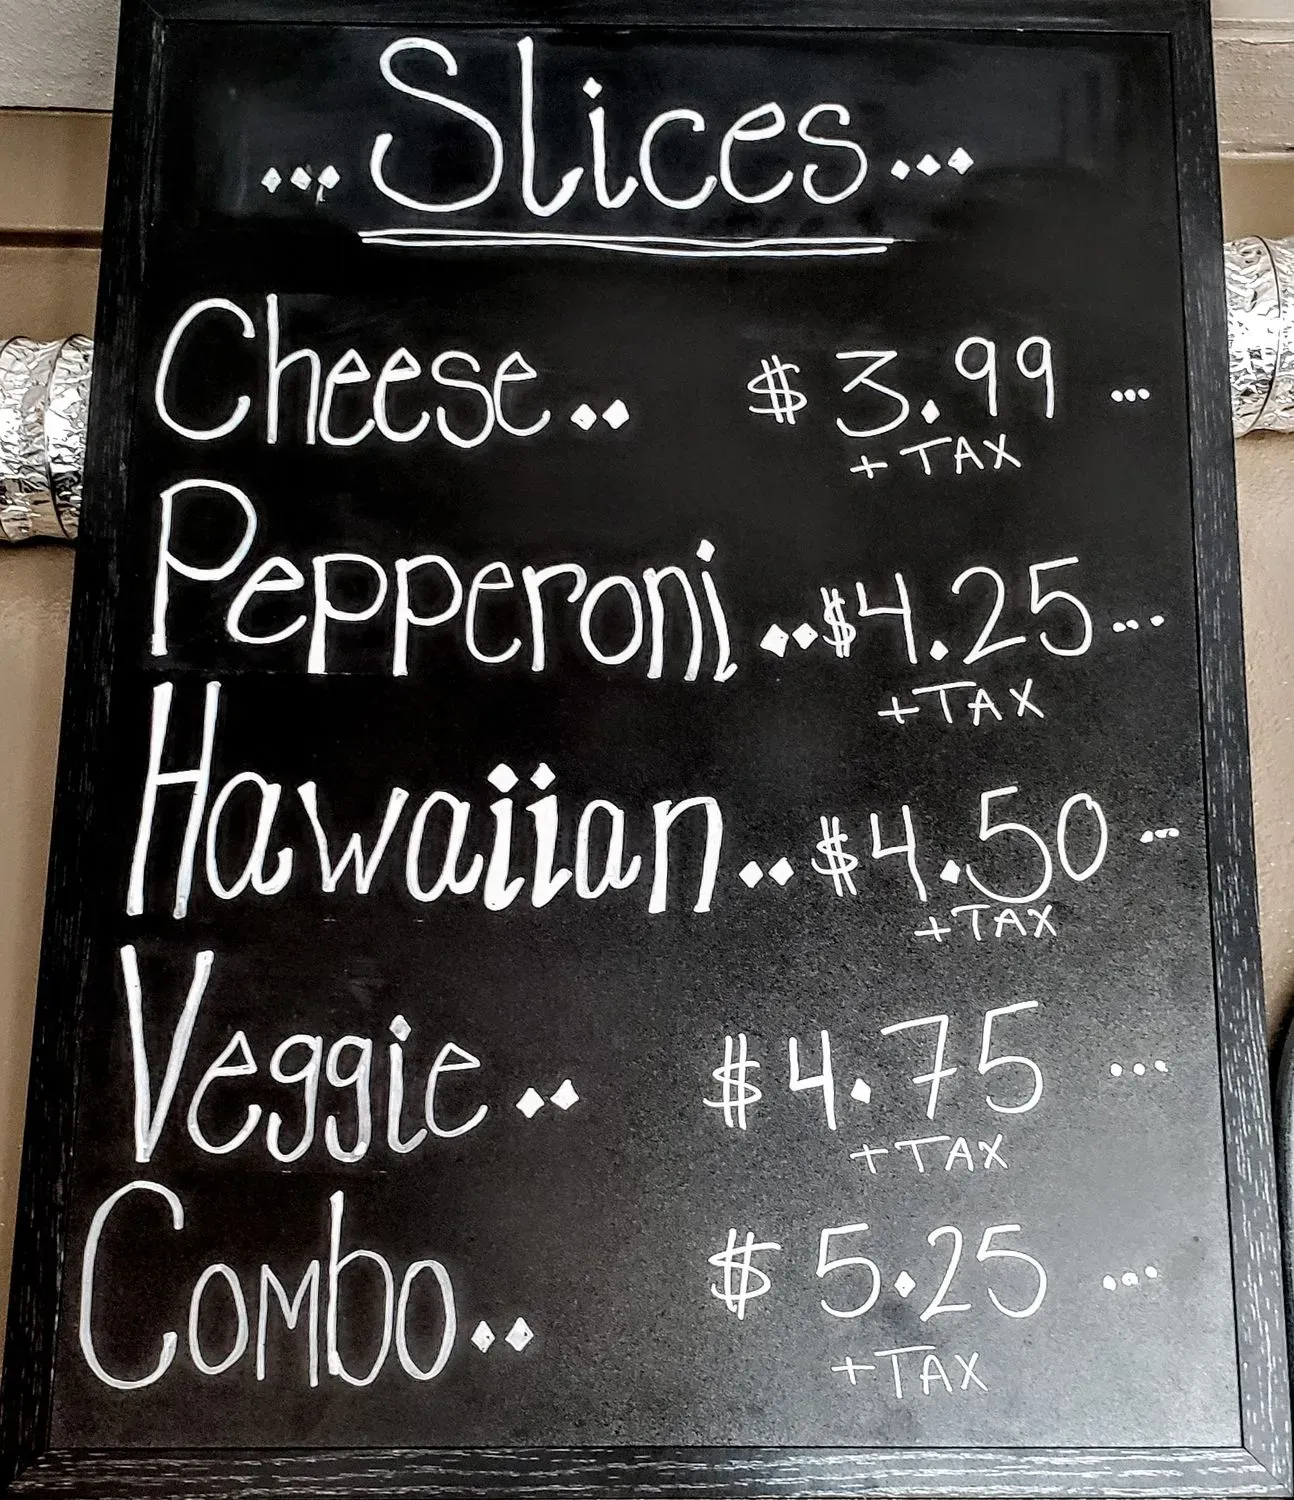 ...Slices...
Cheese.. $3.99 ...
+TAX
Pepperoni ..$4.25...
+TAX
Hawaiian..$4.50...
+TAX
Veggie.. $4.75 ...
+TAX
Combo.. $5.25 ...
+TAX